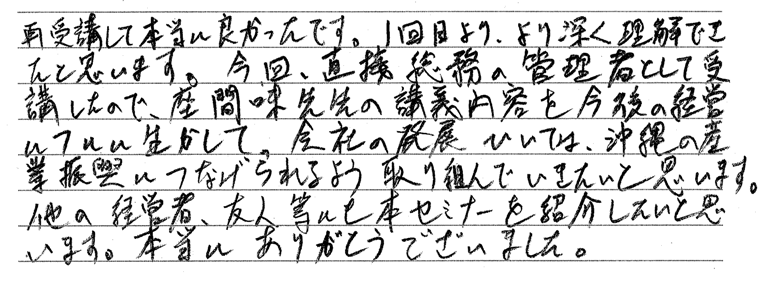 再受講して本当に良かったです。1回目より、より深く理解でき
たと思います。今回、直接総務の管理者として受
講したので、座間味先生の講義内容を今後の経営
にフルに生かして、会社の発展ひいては、沖縄の産
業振興につなげられるよう取り組んでいきたいと思います。
他の経営者、友人等にも本セミナーを紹介したいと思
います。本当にありがとうございました。